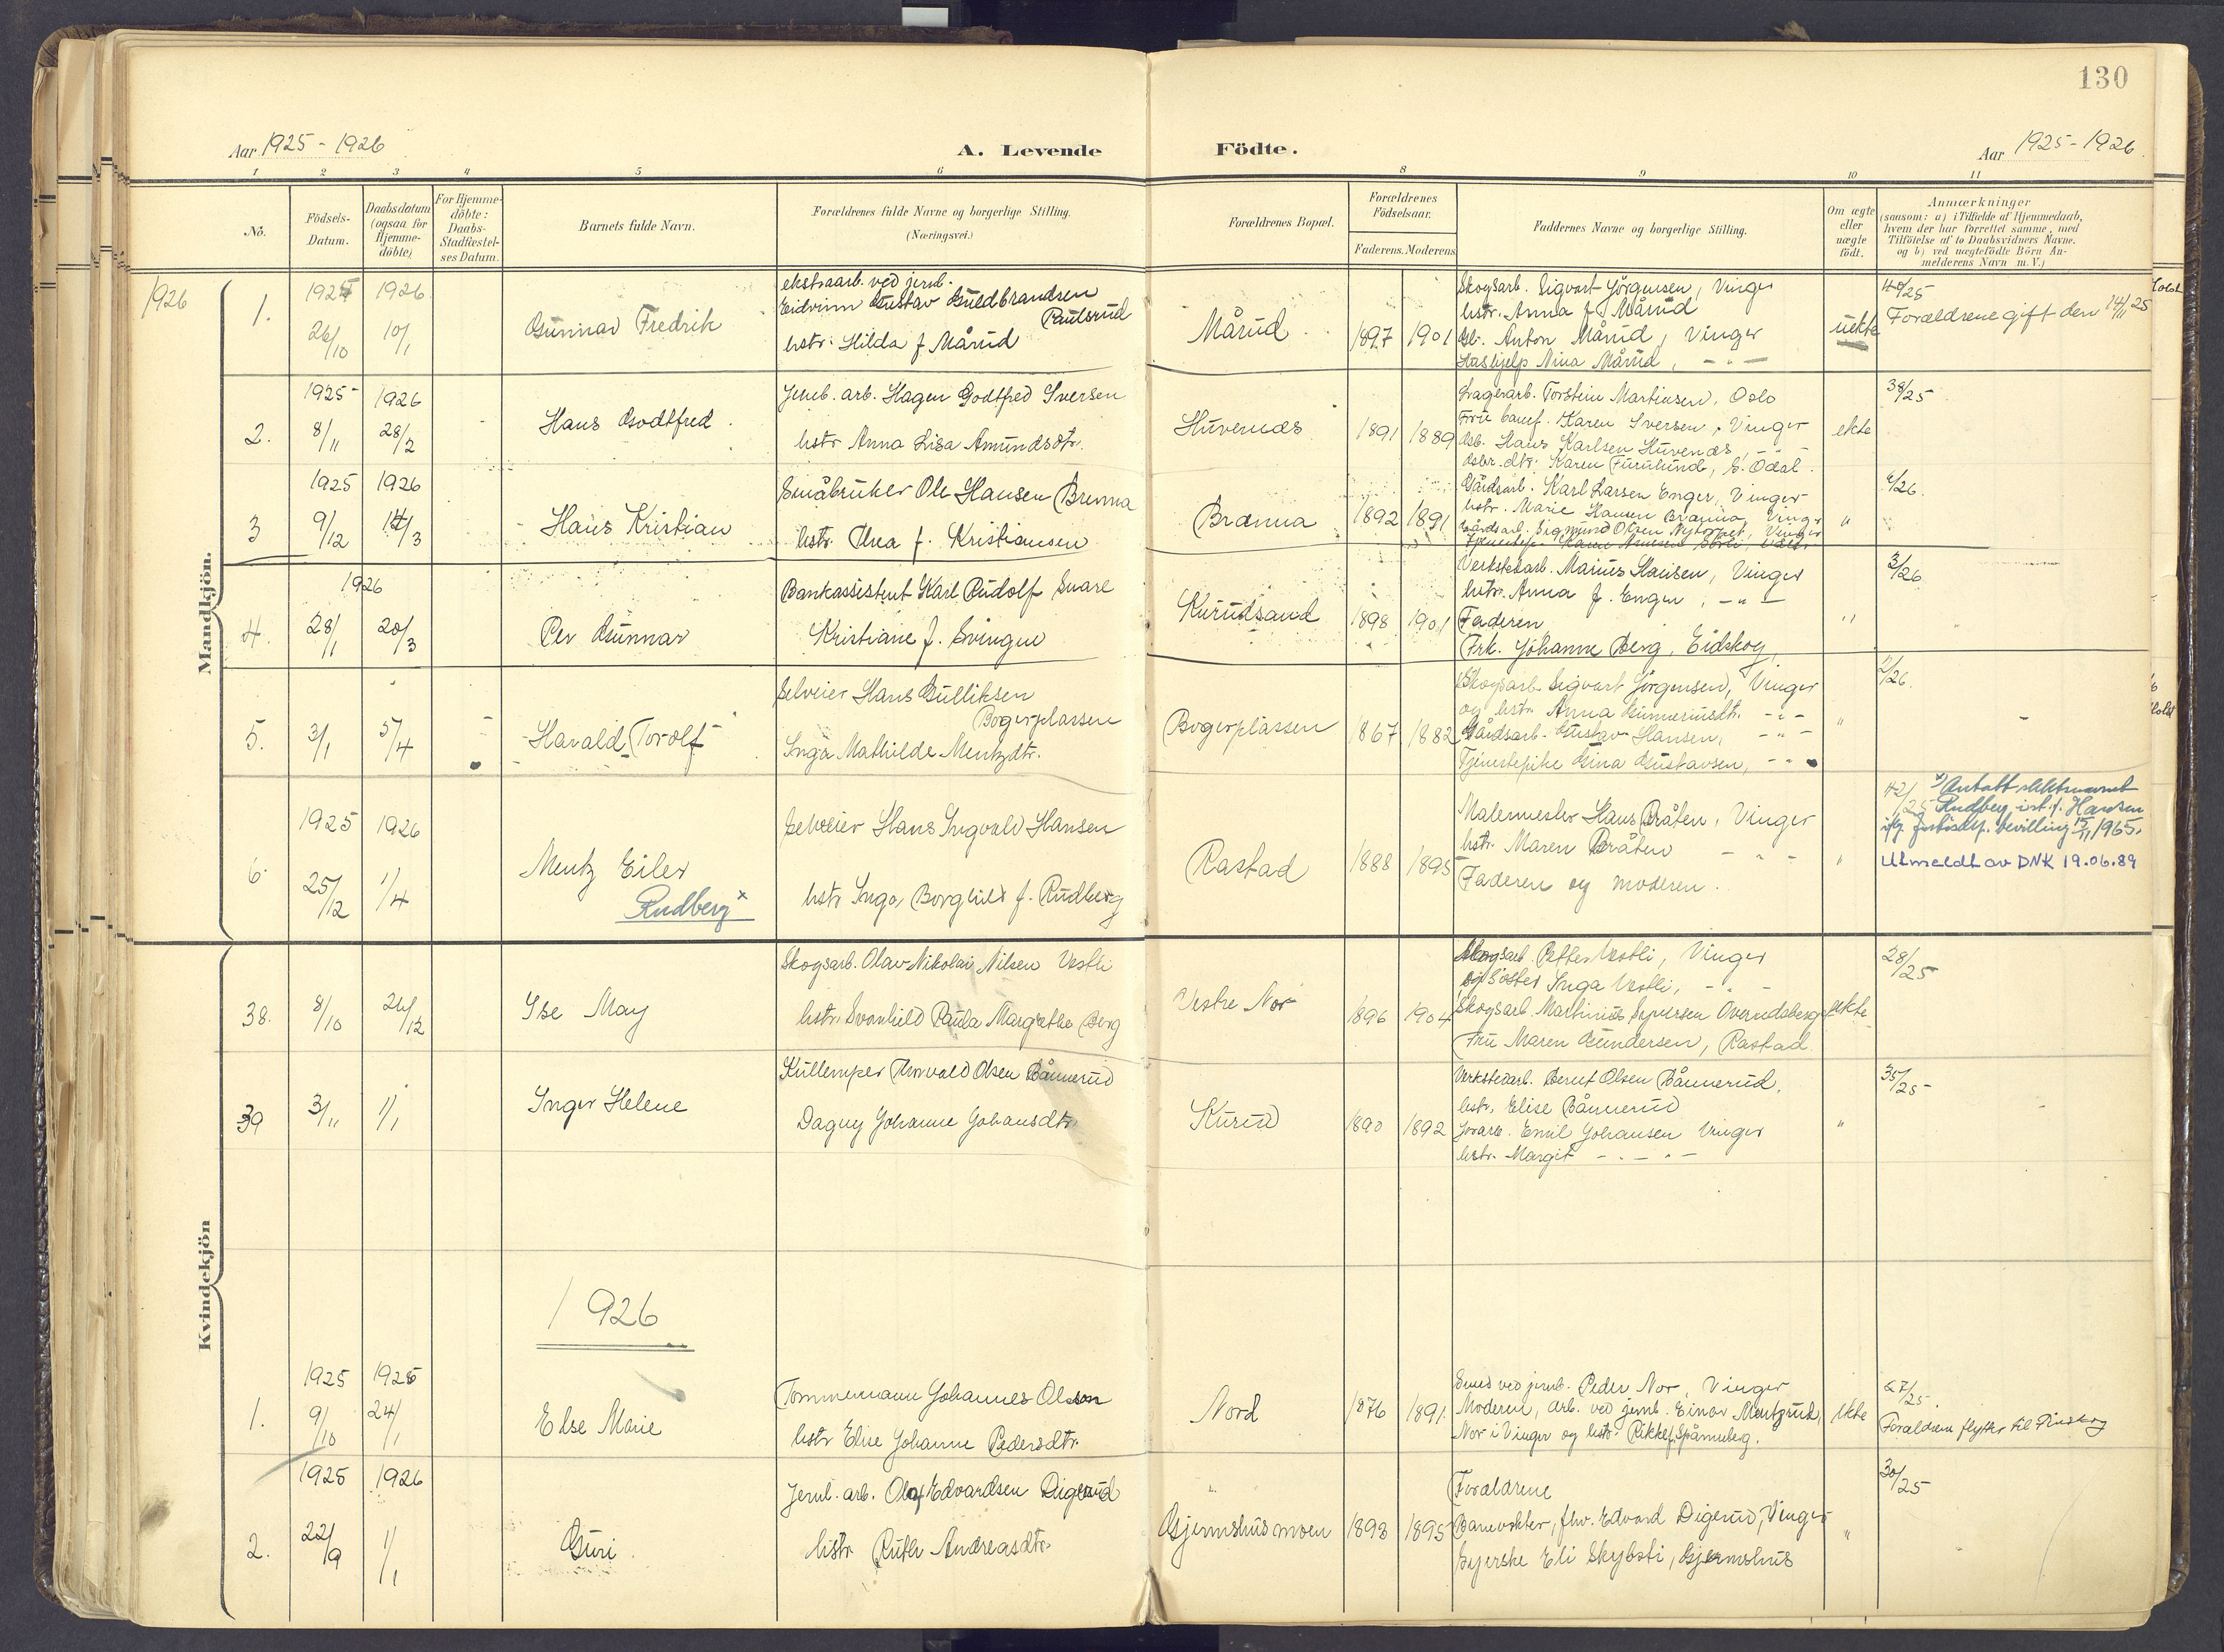 130
Aar 1925 - 1926
A. Levende
Födte.
Aar 1925 - 1926.
1 2 3 4 5 6 8 9 10 11
No.
Födsels-
Datum.
Daabsdatum
(ogsaa for
Hjemme-
döbte)
For Hjemme-
döbte:
Daabs-
Stadfæstel-
ses Datum.
Barnets fulde Navn.
Forældrenes fulde Navne og borgerlige Stilling.
(Næringsvei.)
Forældrenes Bopæl.
Forældrenes
Födselsaar.
Faderens. Moderens.
Faddernes Navne og borgerlige Stilling.
Om ægte
eller
uægte
födt.
Anmærkninger
(saasom: a) i Tilfælde af Hjemmedaab,
hvem der har forrettet samme, med
Tilföielse af to Daabsvidners Navne.
og b) ved uægtefödte Börn An-
melderens Navn m. V.)
Mandkjön.
1926
1.
1925
26/10
1926
10/1
Gunnar Fredrik
ekstraarb. ved jernb.
Eidvinn Gustav Guldbrandsen
Paulsrud
hstr. Hilda f Mårud
Mårud
1897 1901
Skogsarb. Sigvart Jörgensen, Vinger
hstr. Anna f Mårud
Gb. Anton Mårud, Vinger
Hushjelp Nina Mårud, - " -
uekte
40/25
Forældrene gift den 14/11 25
2.
1925
8/11
1926
28/2
Hans Godtfred
Jernb. arb. Hagen Godtfred Iversen
hstr Anna Lisa Amundsdtr.
Huvernes
1891 1889
Lagerarb. Torstein Martinsen, Oslo
Frue banef. Karen Iversen, Vinger
Gsb. Hans Karlsen Huvenes, - " -
Gsbr. dtr. Karen Furulund, S. Odal.
ekte
38/25
3
1925
9/12
1926
14/3
Hans Kristian
Småbruker Ole Hansen Brenna
hstr. Thea f. Kristiansen
Brænna
1892 1891
Gårdsarb. Karl Larsen Enger, Vinger
hstr. Marie Hansen Brænna, Vinger
Gårdsarb. Sigmund Olsen Nytorpet, Vinger
"
6/26.
4.
1926
28/1
20/3
Per Gunnar
Bankassistent Karl Rudolf Snare
Kristiane f. Svingen
Kurudsand
1898 1901
Verkstedarb. Marius Hansen, Vinger
hstr. Anna f. Enger, - " -
Faderen
Frk. Johanne Berg, Eidskog,
"
3/26
5.
3/1
5/4
Harald Torolf
Selveier Hans Gulliksen
Bogerplassen
Inga Mathilde Mentzdtr.
Bogerplassen
1867 1882
Skogsarb. Sigvart Jörgensen, Vinger
og hstr. Anna Gunneriusdtr. - " -
Gårdsarb. Gustav Hansen, - " -
Tjenestepike Gina Gustavsen, - " -
"
2/26.
6.
1925
25/12
1926
1/4
Mentz Eiler
Rudberg x
Selveier Hans Ingvald Hansen
hstr Inga Borghild f. Rudberg
Rastad
1888 1895
Malermester Hans Bråten, Vinger
hstr. Maren Bråten - " -
Faderen og moderen.
"
42/25
x) Antatt slektsnavnet
Rudberg ist. f. Hansen
iflg. Justisdep. bevilling 15/11 1965.
Utmeldt av DNK 19.06.89
Kvindekjön
38.
8/10
26/12
Ise May
Skogsarb. Olav Nikolai Nilsen Vestli
hstr. Svanhild Paula Margrethe Berg
Vestre Nor
1896 1904
Skogsarb. Petter Vestli, Vinger
og Söster Inga Vestli, - " -
Skogsarb. Martinius Syversen Overudsberg
Fru Maren Gundersen, Rastad
ekte
28/25
39
3/11
1/1
Inger Helene
Kullemper Thorvald Olsen Bånnerud
Dagny Johanne Johansdtr.
Kurud
1890 1892
Verkstedarb. Bernt Olsen Bånnerud,
hstr. Elise Bånnerud
Jernarb. Emil Johansen Vinger
hstr. Margit - " - " -
"
35/25
1926
1.
1925
9/10
1926
24/1
Else Marie
Tömmermann Johannes Olsson
hstr Elise Johanne Pedersdtr.
Nord
1876 1891.
Smed ved jernb. Peder Nor, Vinger
Moderen, Arb. ved jernb. Einar Mentzrud,
Nor i Vinger og hstr. Rikke f. Spånneberg.
ekte
27/25.
Foraldrene flytter til Finskog
2.
1925
22/9
1926
1/1
Guri
Jernb. arb. Olaf Edvardsen Digerud
hstr. Ruth Andreasdtr.
Gjermshusmoen
1893 1895
Foraldrene
Banevokter, fhv. Edvard Digerud, Vinger
Syerske Eli Skybsti, Gjermshus
"
30/25